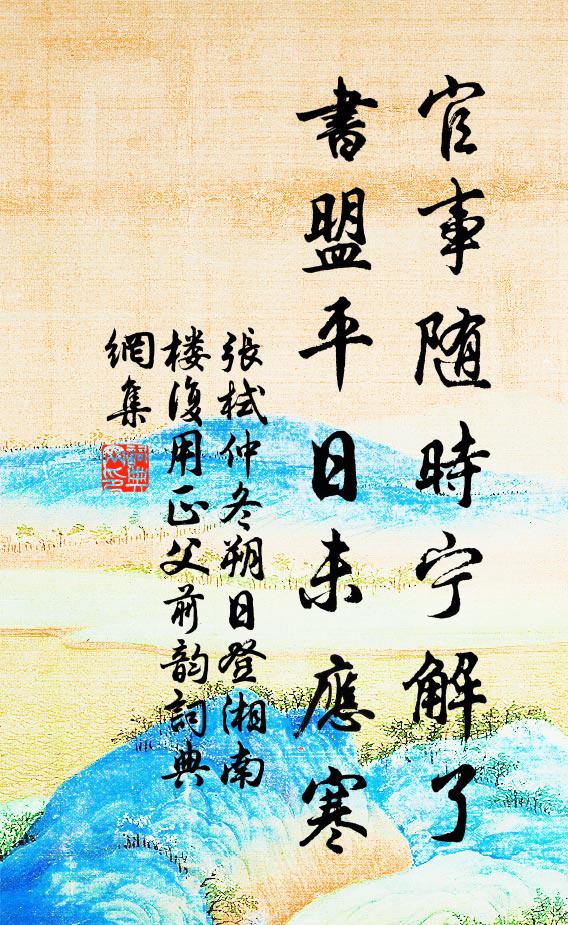 官事随時宁解了
書盟平日未應寒
張栻仲冬朔日登湘南
楼復用正父前韵詞典
網集